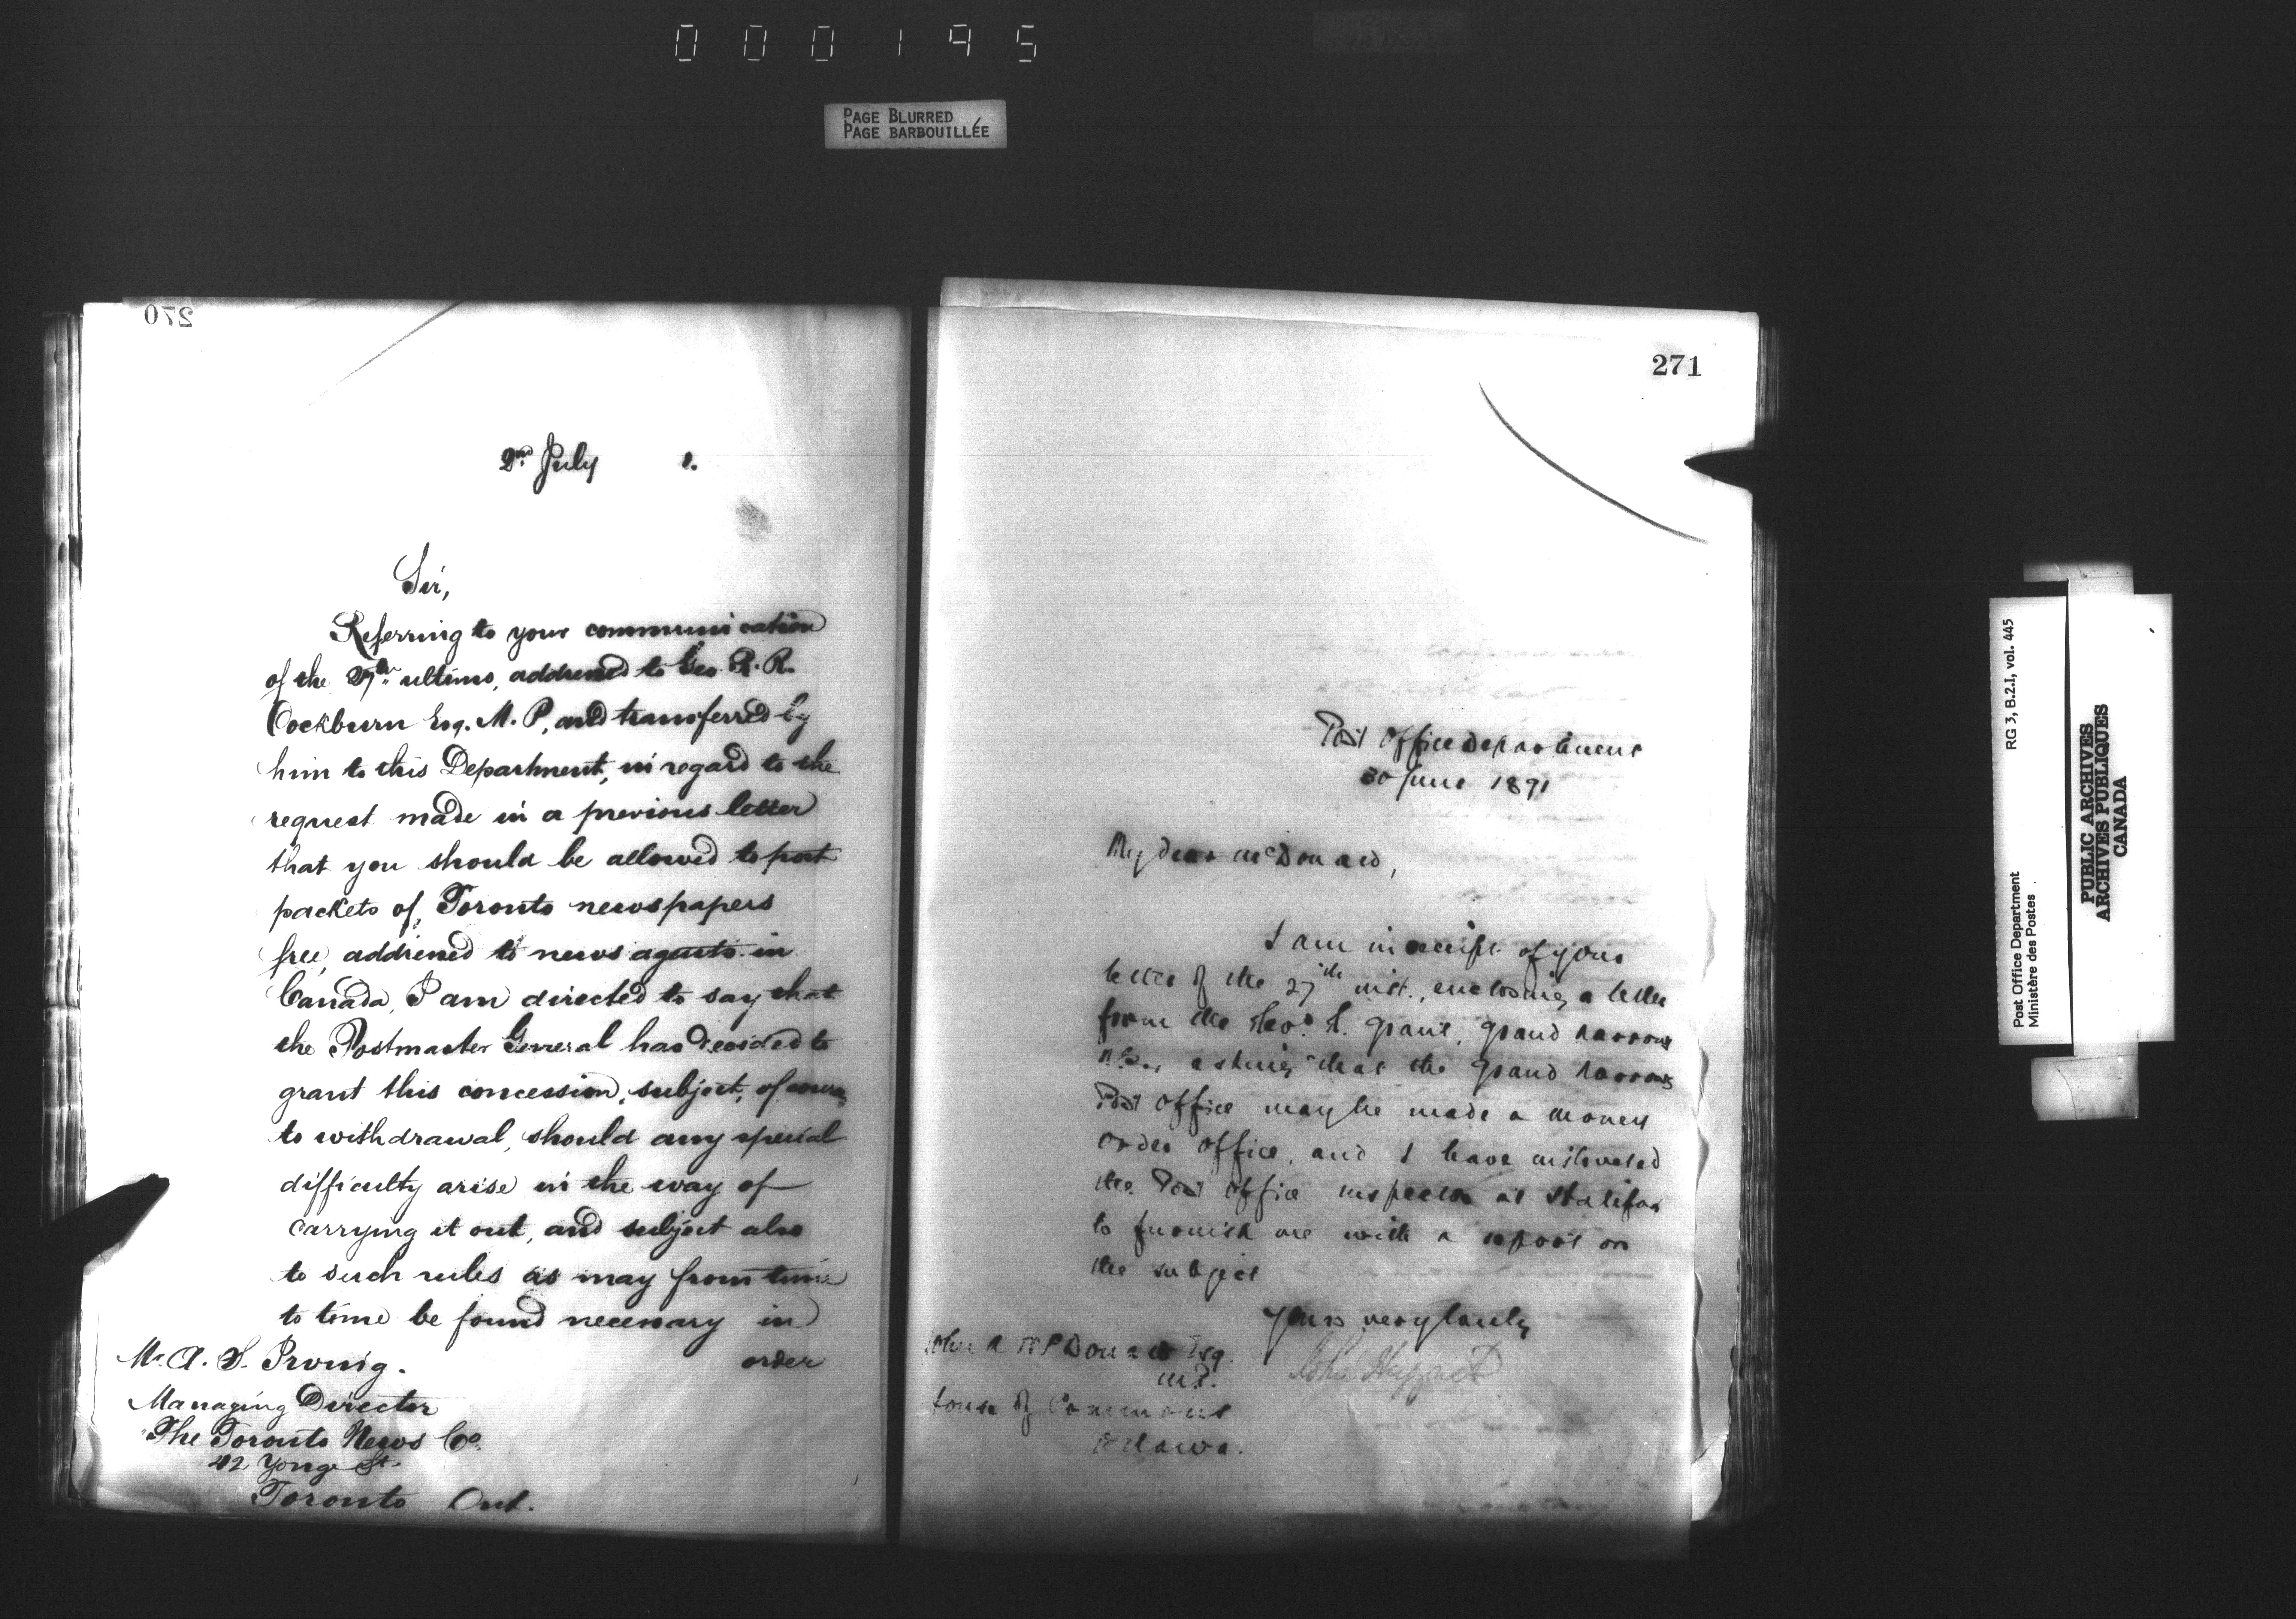 000195
PAGE BLURRED
PAGE BARBOUILLÉE
270
2nd July 1.
Sir,
Referring to your communication
of the 27th ultimo, addressed to Geo. R. R.
Cockburn Esq. M. P, and transferred by
him to this Department, in regard to the
request made in a previous letter
that you should be allowed to post
packets of Toronto newspapers
free, addressed to news agents in
Canada, I am directed to say that
the Postmaster General has decided to
grant this concession, subject, of course,
to withdrawal, should any special
difficulty arise in the way of
carrying it out, and subject also
to such rules as may from time
to time be found necessary in
order
Mr. A. S. Irving.
Managing Director
The Toronto News Co.
42 Yonge St.
Toronto Ont.
271
Post Office Department
30 June 1891
My dear McDonald,
I am in receipt of your
letter of the 27th inst., enclosing a letter
from the Revd. Grant, Grand Narrows
asking that the Grand Narrows
Post Office may be made a money
order office, and I have instructed
the Post Office Inspector at Halifax
to furnish me with a report on
the subject
Yours very truly,
John Haggart
John A McDonald Esq.
M.P.
House of Commons
Ottawa.
Post Office Department RG 3, B.2.I, vol. 445
Ministère des Postes
PUBLIC ARCHIVES
ARCHIVES PUBLIQUES
CANADA